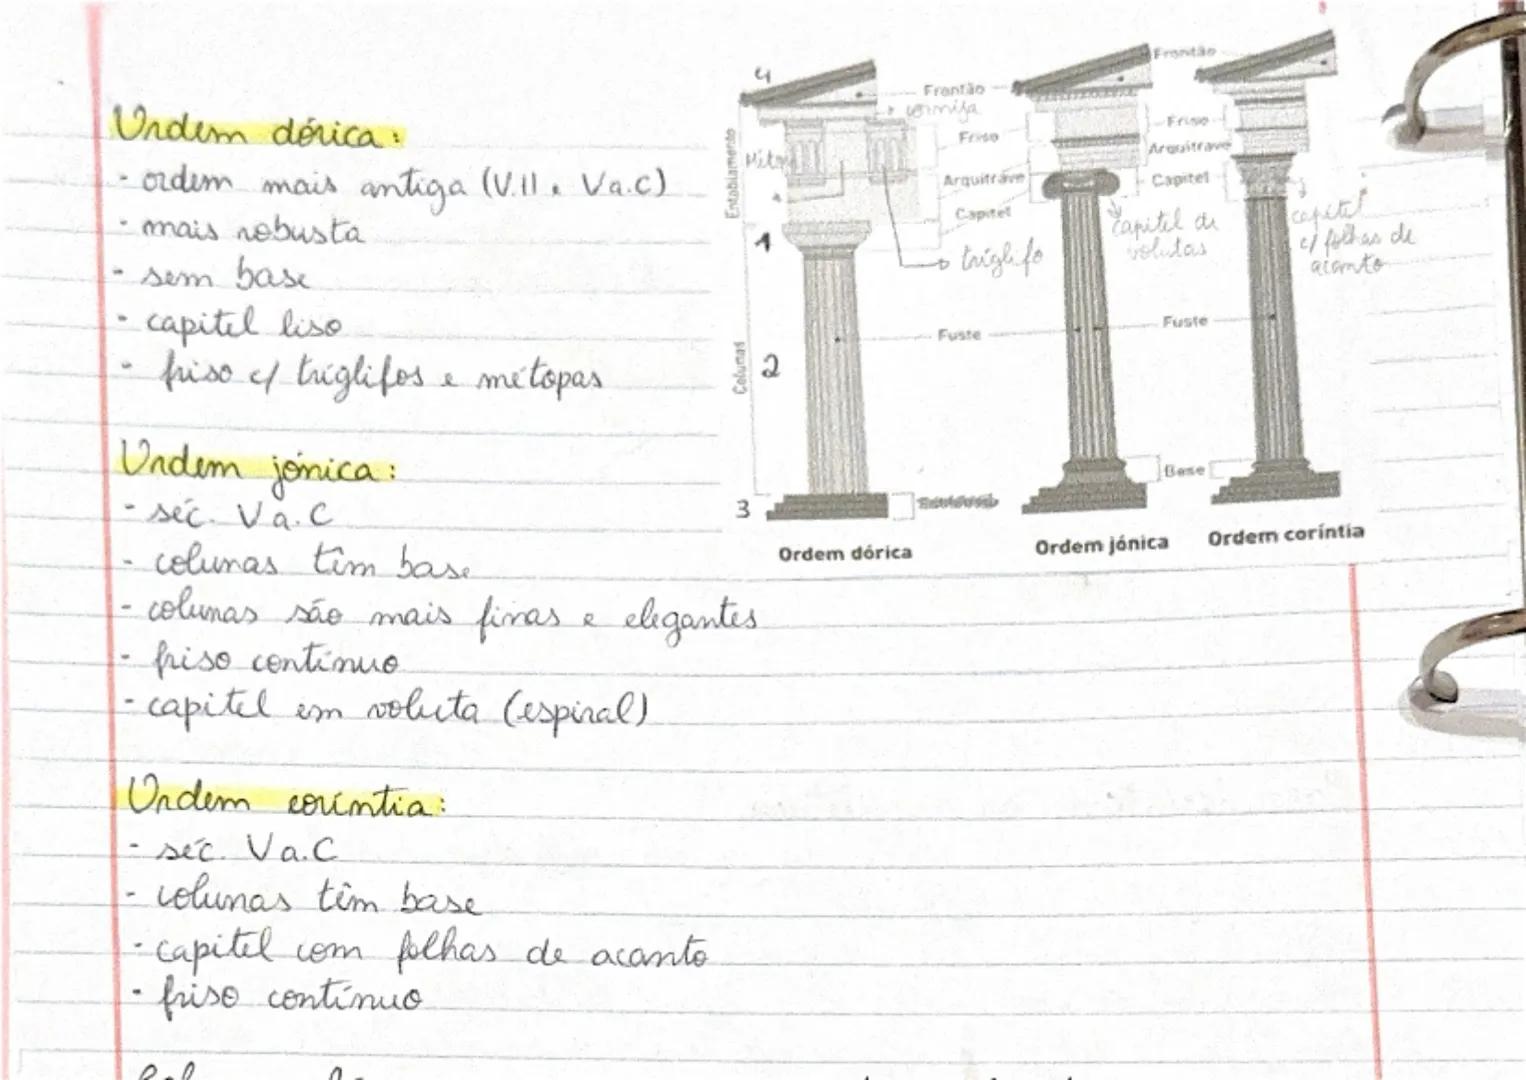 Ordem dórica:
- ordem mais antiga (VII e V a.C)
- mais robusta
- sem base
- capitel liso
- friso c/ tríglifos e métopas
Ordem jónica:
- séc. V a.C
- colunas têm base
- colunas são mais finas e elegantes
- friso contínuo
- capitel em voluta (espiral)
Ordem coríntia:
- séc. V a.C
- colunas têm base
- capitel com folhas de acanto
- friso contínuo
4
Frontão
Frontão
cornija
Friso
Friso
Entablamento
Arquitrave
Arquitrave
Capitel
Capitel
1
tríglifo
capitel de
volutas
capitel
c/ folhas de
acanto
Fuste
Fuste
Colunas
2
Base
3
Ordem dórica
Ordem jónica
Ordem coríntia